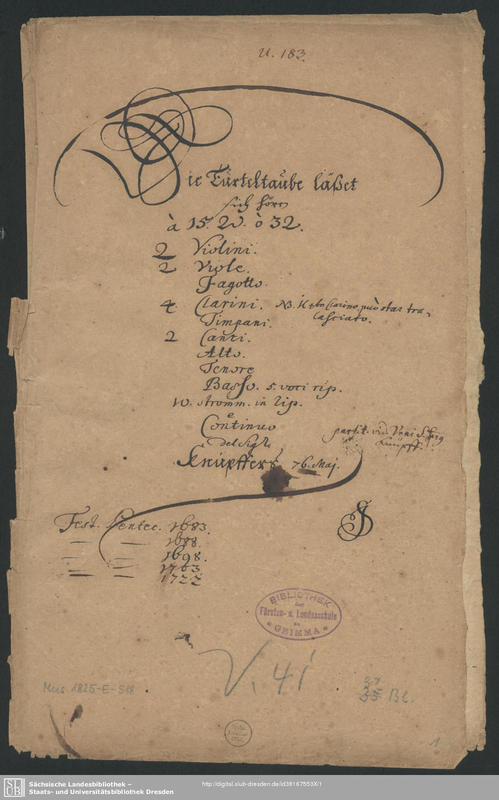 U. 183.
Die Türteltaube läßet
sich hören
à 15. 20. ò 32.
2 Violini.
2 Viole.
Fagotto.
4 Clarini. NB. il 4to Clarino può star tra-
lasciato.
Timpani.
2 Canti.
Alto.
Tenore
Basso. 5. voci rip.
10. stromm. in rip.
e
Continuo
del Sigr.
Knüpffers 76. Maj.
partit. vid. Veni S.
Knüpff.
Fest. Pentec. 1683.
— — 1688.
— — 1698.
— — 1703
— — 1722
SJ
BIBLIOTHEK
der
Fürsten- u. Landesschule
zu
GRIMMA
V. 41
Mus. 1825-E-518
55 Bl.
1
SLUB
Sächsische Landesbibliothek –
Staats- und Universitätsbibliothek Dresden
http://digital.slub-dresden.de/id38167553X/1